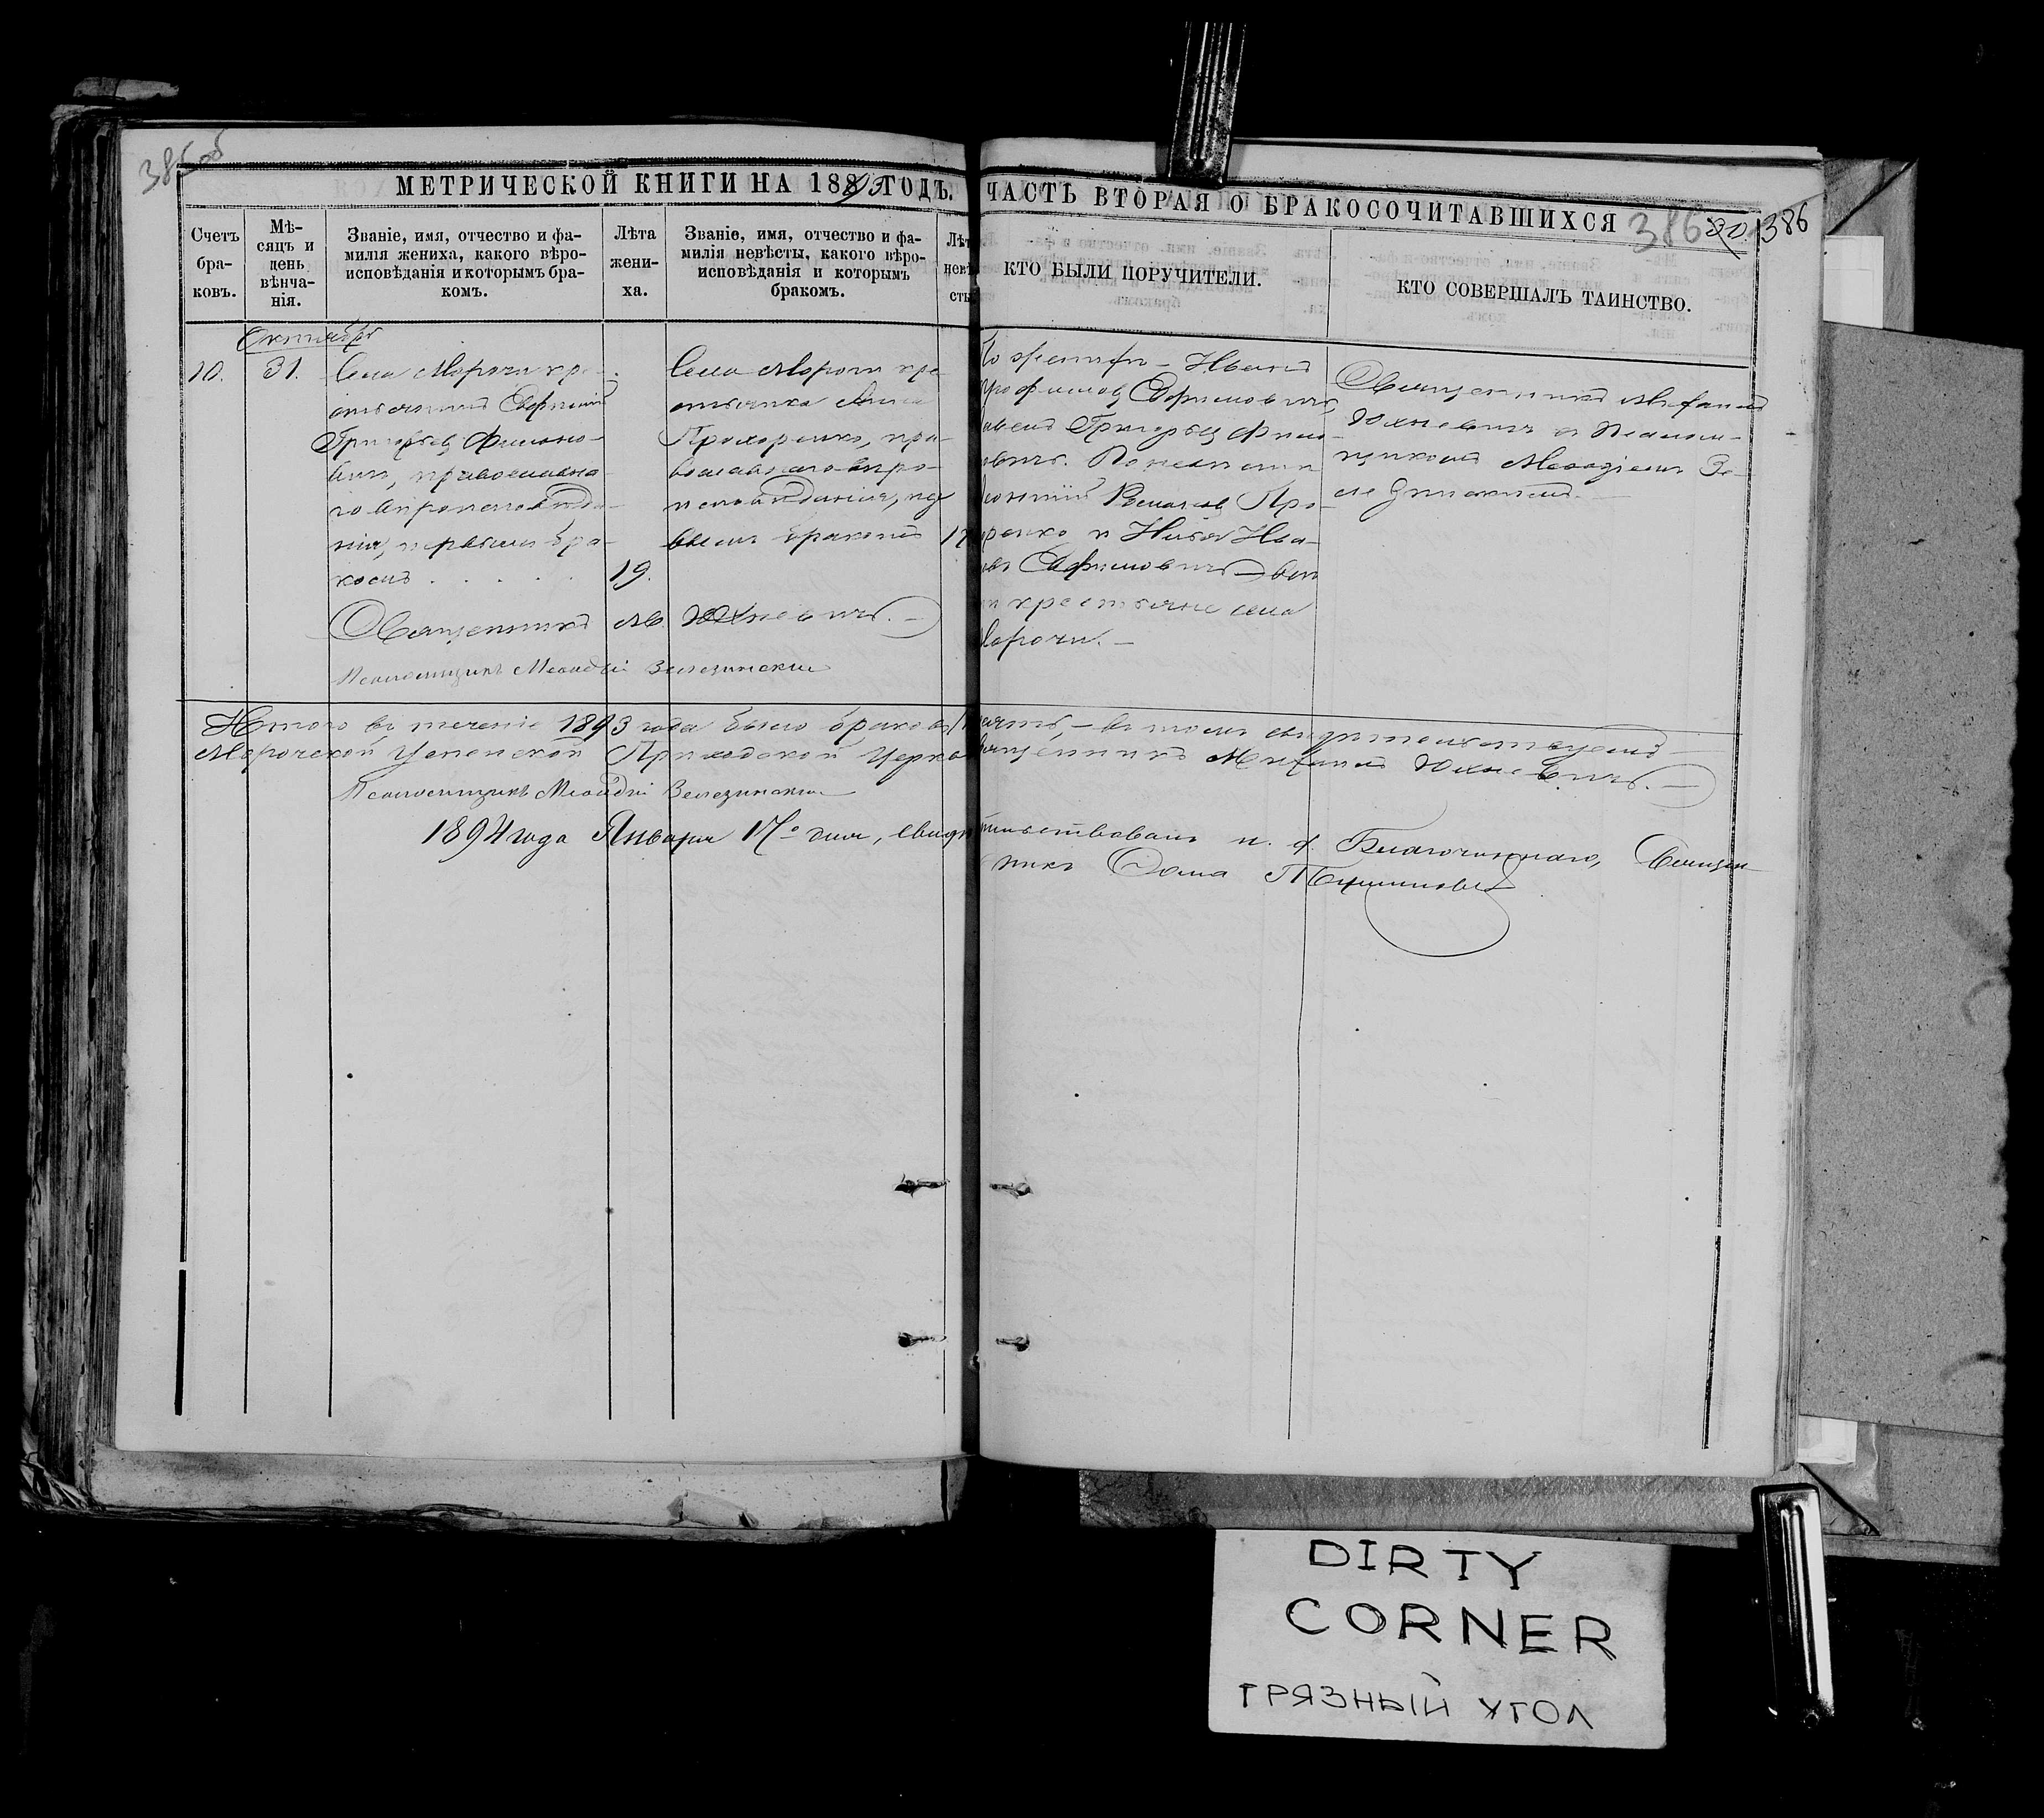 385об
МЕТРИЧЕСКОЙ КНИГИ НА 1893 ГОДЪ.
ЧАСТЬ ВТОРАЯ О БРАКОСОЧИТАВШИХСЯ
386 30. 386
Счетъ
бра-
ковъ.
Мѣ-
сяцъ и
день
вѣнча-
нія.
Званіе, имя, отчество и фа-
милія жениха, какого вѣро-
исповѣданія и которымъ бра-
комъ.
Лѣта
жени-
ха.
Званіе, имя, отчество и фа-
милія невѣсты, какого вѣро-
исповѣданія и которымъ
бракомъ.
Лѣт
невѣ
сты
КТО БЫЛИ ПОРУЧИТЕЛИ.
КТО СОВЕРШАЛЪ ТАИНСТВО.
Октябрь
10.
31.
Села Морочи кре-
стьянинъ
Григорьевъ Филимо-
вичъ, православна-
го вѣроисповѣда-
нія, первымъ бра-
комъ
19.
Села Морочи кре-
стьянка Анна
Прохоренко, пра-
вославнаго вѣро-
исповѣданія, пер
вымъ бракомъ
17
По женихѣ – Иванъ
Григорьевъ Фили-
овичъ. По невѣстѣ
Про-
ренко и Ива-
крестьяне села
Морочи. –
Священникъ Михаилъ
Юхневичъ съ Псалом-
щикомъ Меѳодіемъ Зе-
лезинскимъ.
Священникъ Мих. Юхневичъ. –
Псаломщикъ Меѳодій Зелезинскій
Итого въ теченіе 1893 года было браковъ десять, – въ томъ свидѣтельствуемъ –
Морочской Успенской Приходской Церкви Священникъ Михаилъ Юхневичъ. –
Псаломщикъ Меѳодій Зелезинскій
1894 года Января 17го дня, свидѣтельствовалъ и. д. Благочиннаго, Священ-
никъ Ѳома
DIRTY
CORNER
ГРЯЗНЫЙ УГОЛ